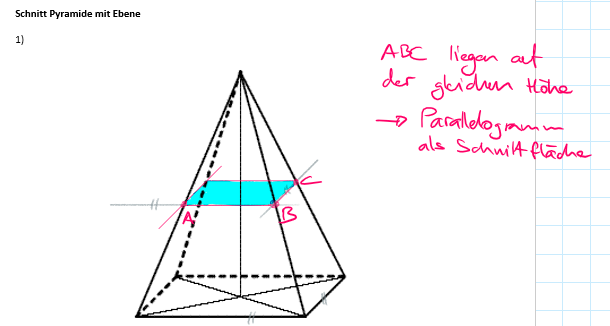 Schnitt Pyramide mit Ebene
1)
ABC liegen auf
der gleichen Höhe
→ Parallelogramm
als Schnittfläche
C
A
B